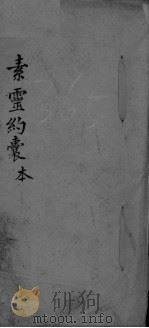 素靈約囊本
研狗
mtoou.info